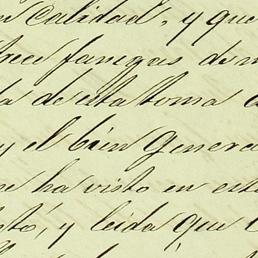 n calidad, y que
trece fanegas de m
la de esta toma d
y el bien Genera
se ha visto en est
nto, y leida que